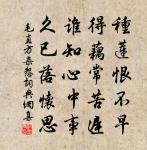 種蓮恨不早
得藕常苦遲
誰知心中事
久已落懷思
毛直方桑怨詞典網